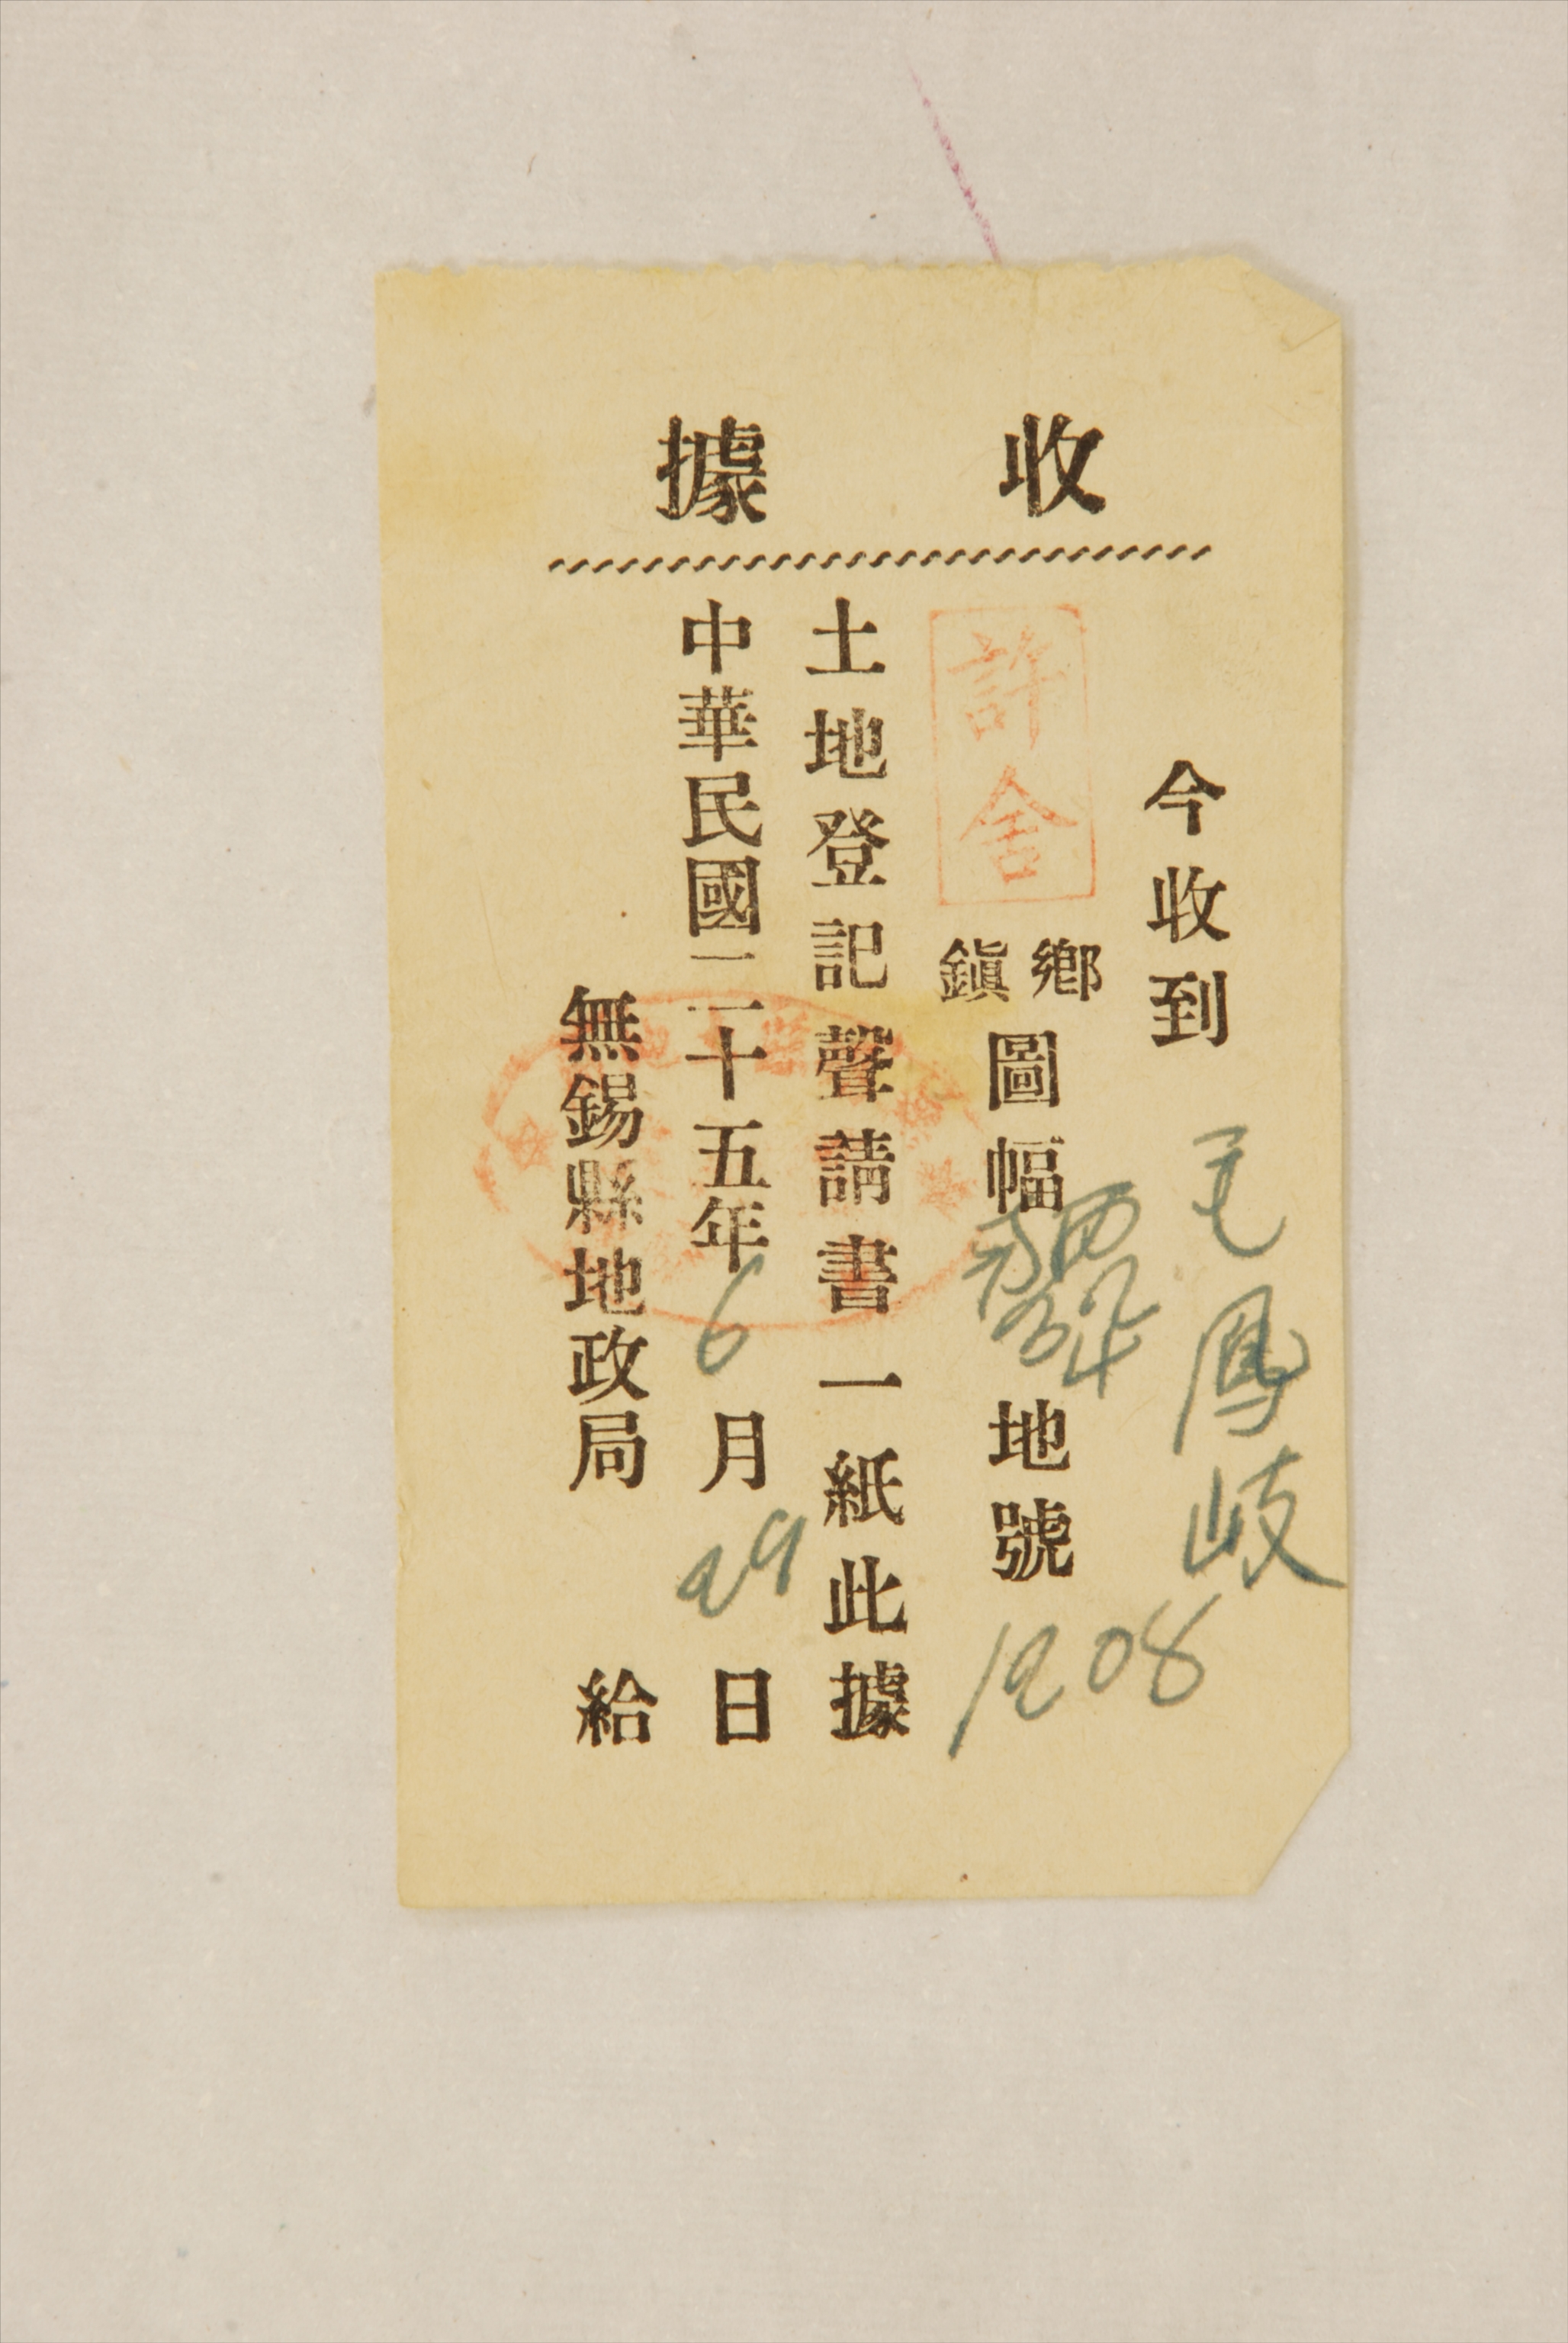 收據
今收到 毛鳳岐
許舍 鄉鎮 圖幅 地號 1208
土地登記聲請書一紙此據
中華民國二十五年6月29日
無錫縣地政局 給